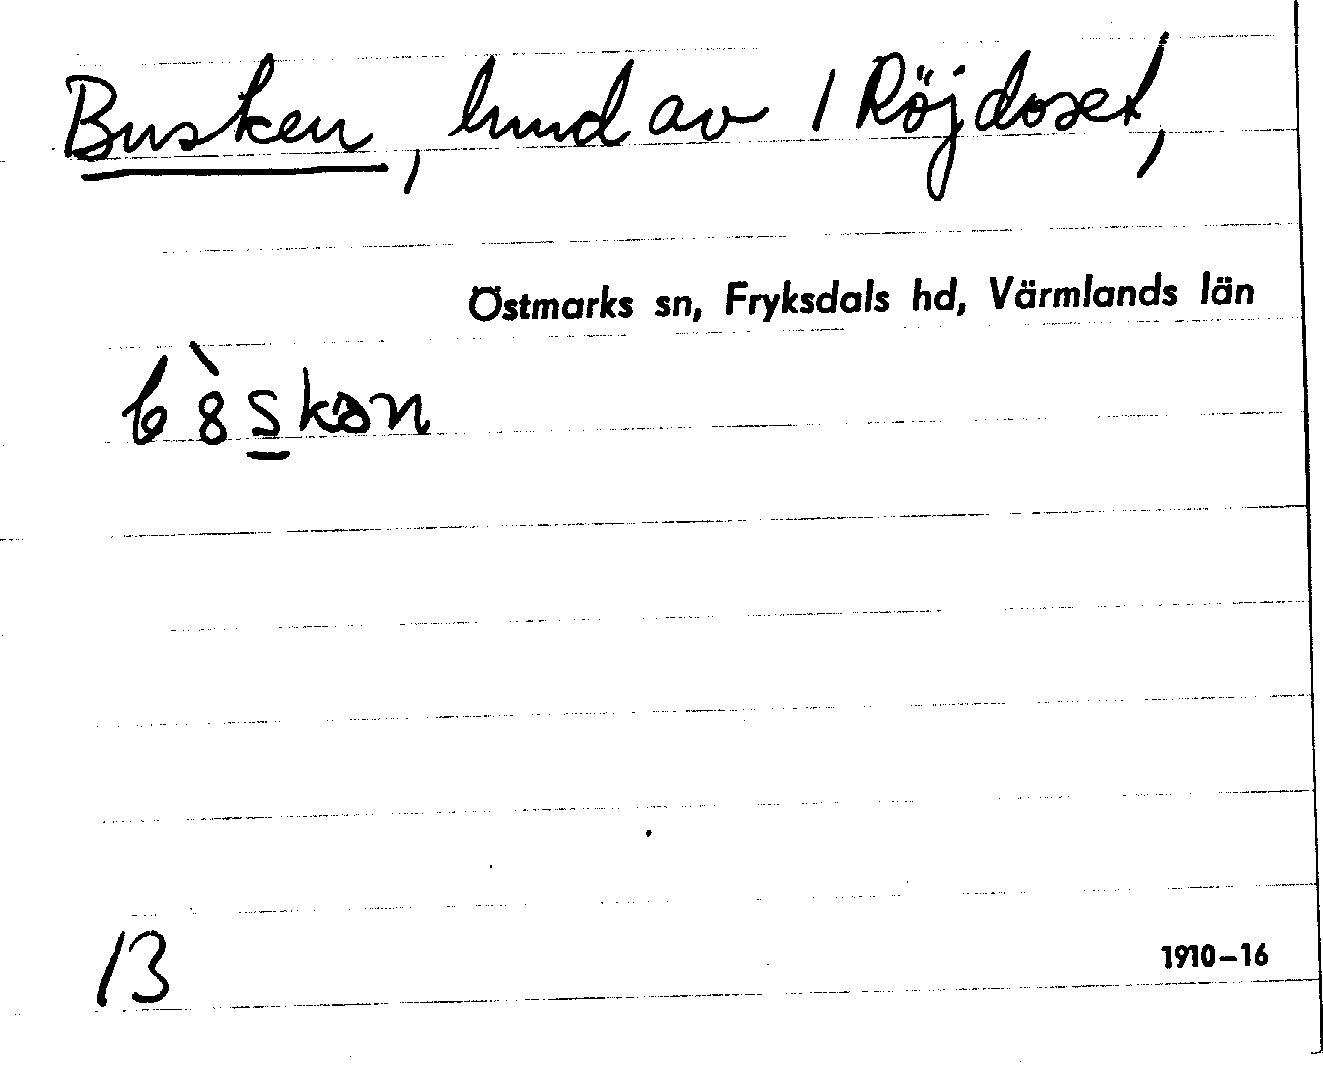 Busken, hmd av 1 Röjdoset,
Östmarks sn, Fryksdals hd, Värmlands län
b8̀s̲kən
13
1910–16